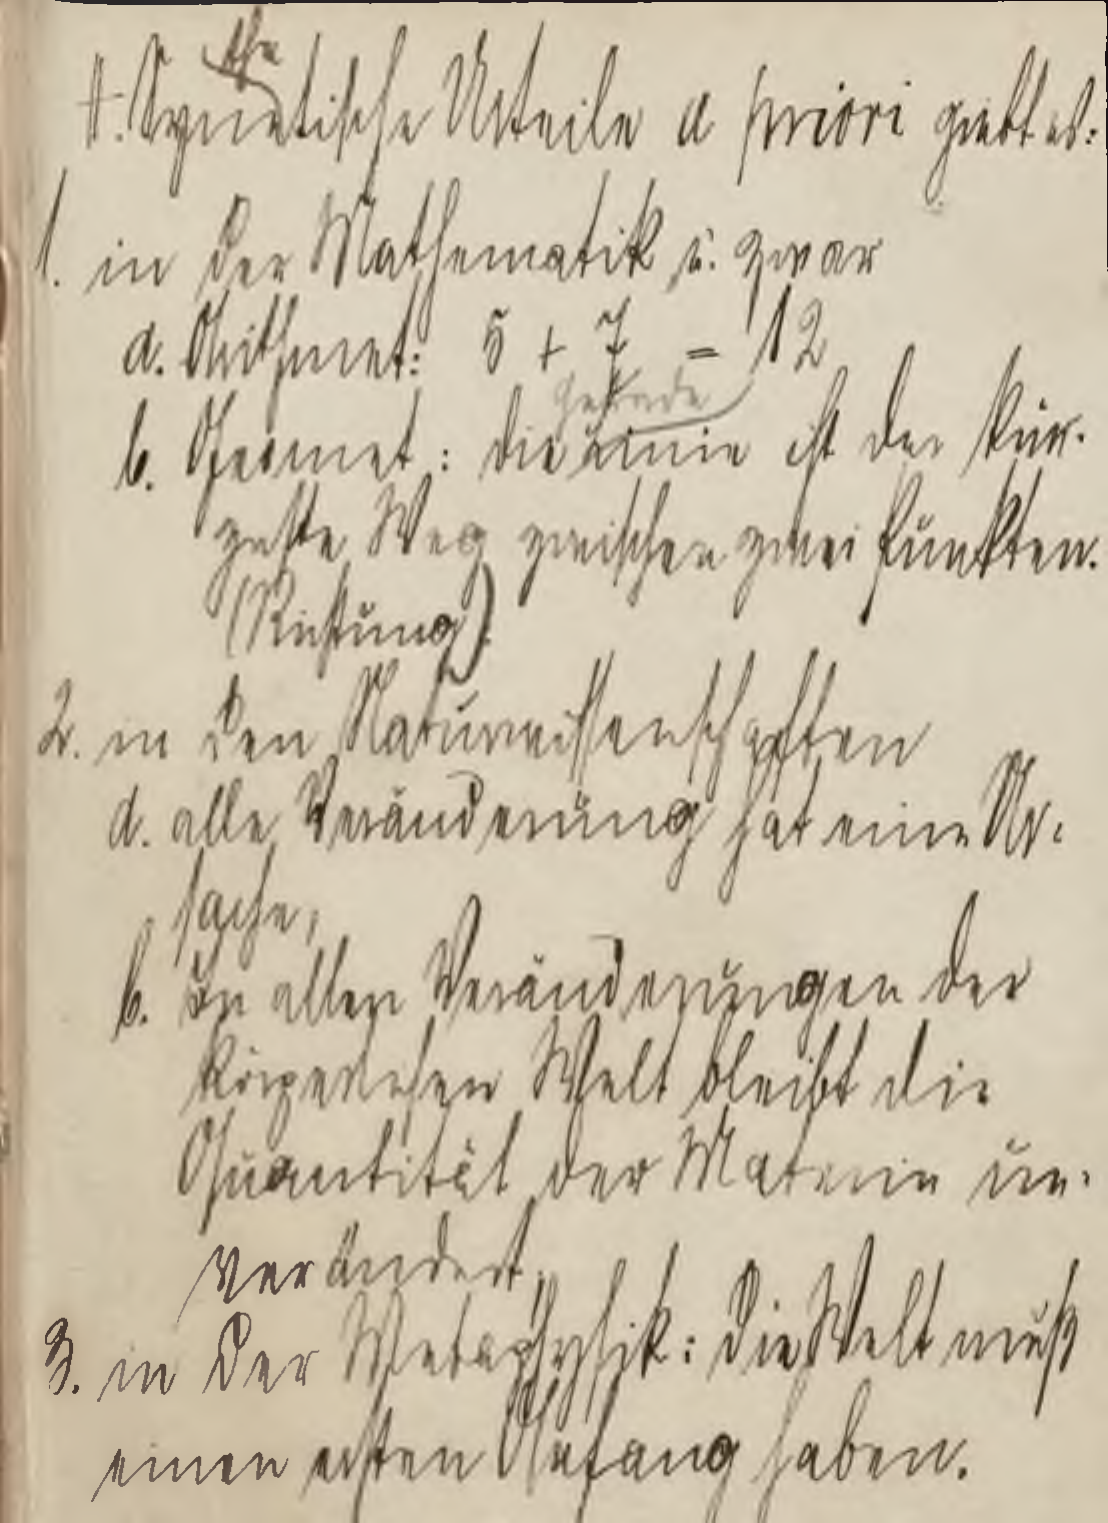 A. Synthetische Urteile a priori giebt es:
1. in der Mathematik u. zwar
a. Arithmet: 5 + 7 = 12
b. Geomet.: die gerade Linie ist der kür-
zeste Weg zwischen zwei Punkten.
(Richtung).
2. in den Naturwissenschaften
a. alle Veränderung hat eine Ur-
sache,
b. in allen Veränderungen der
körperlichen Welt bleibt die
Quantität der Materie un-
verändert.
3. in der Metaphysik: die Welt muß
einen ersten Anfang haben.